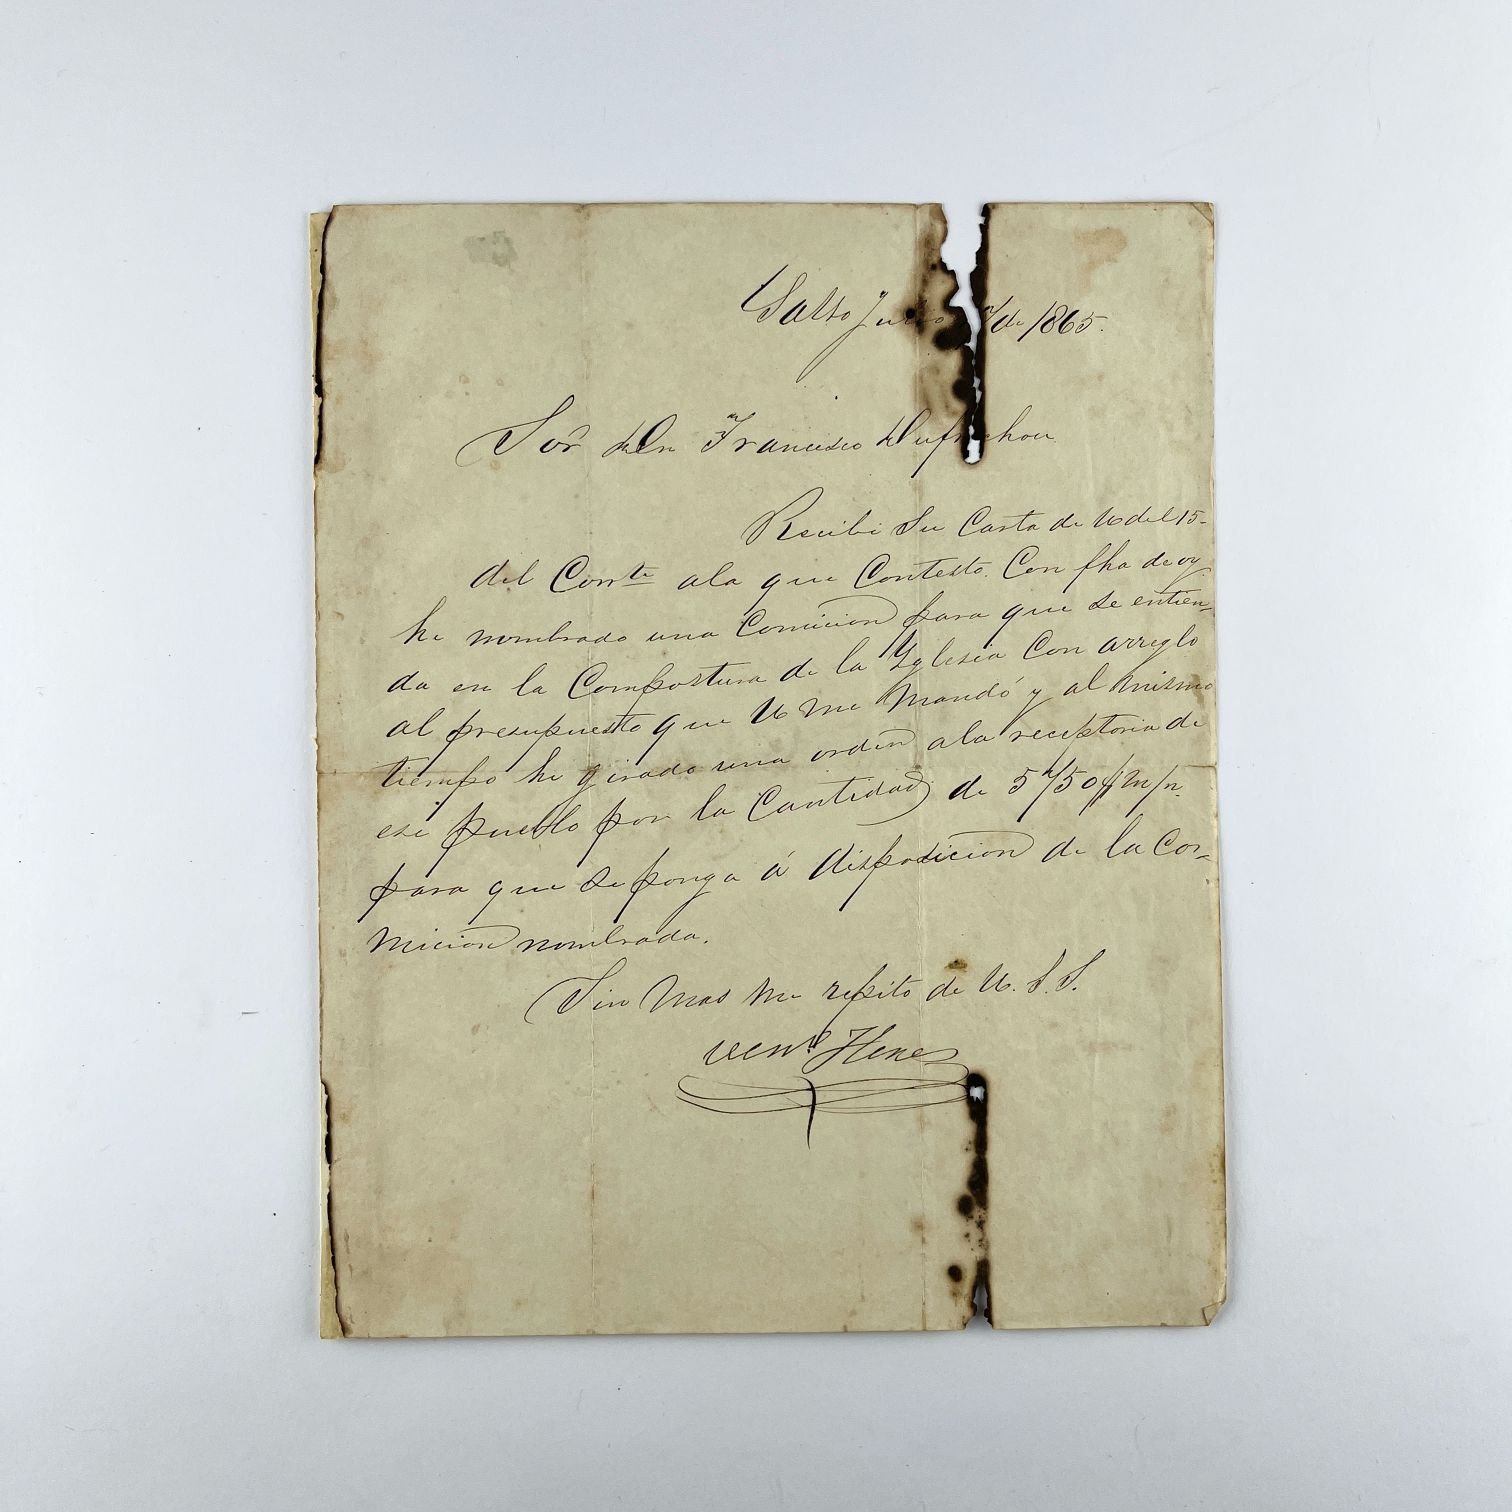 Salto Ju 7 de 1865.
Sor. dn. Francisco Dufrechou
Recibi Su Carta de U del 15-
del Corrte ala que Contesto. Con fha de oy
he nombrado una Comicion para que se entien-
da en la Compostura de la Yglesia Con arreglo
al presupuesto que U me Mandó y al mismo
tiempo he girado una orden ala receptoria de
ese pueblo por la Cantidad de m/n.
para que se ponga á disposicion de la Co-
micion nombrada.
Sin Mas me repito de U. S. S.